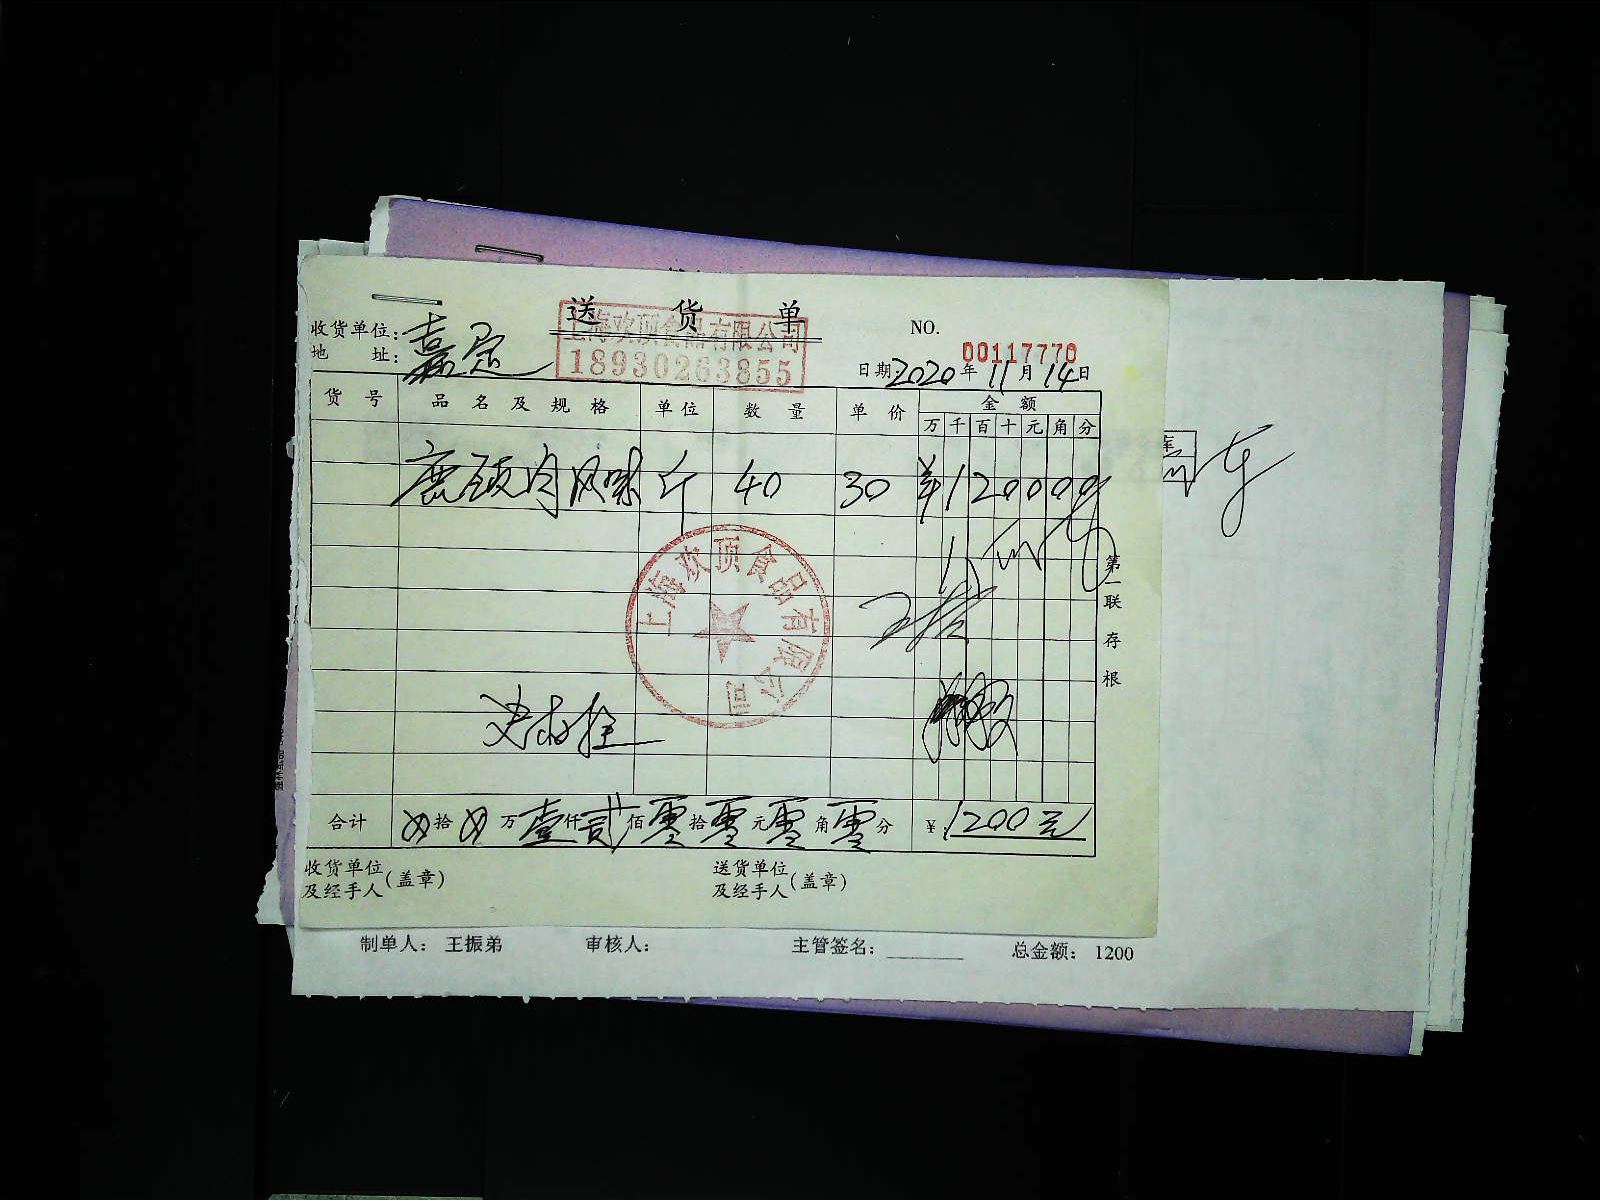 送 货 单
上海欢顶食品有限公司
18930263855
NO.
00117770
收货单位: 嘉定
地 址:
日期: 2020 年 11 月 14 日
货 号 品 名 及 规 格 单 位 数 量 单 价 金 额
万 千 百 十 元 角 分
鹿颈肉风味 斤 40 30 ¥120000
上海欢顶食品有限公司
第一联 存根
合计 拾 万 壹仟贰佰零拾零元零角零分 ¥: 1200元
收货单位
及经手人(盖章)
送货单位
及经手人(盖章)
制单人: 王振弟 审核人: 主管签名: 总金额: 1200